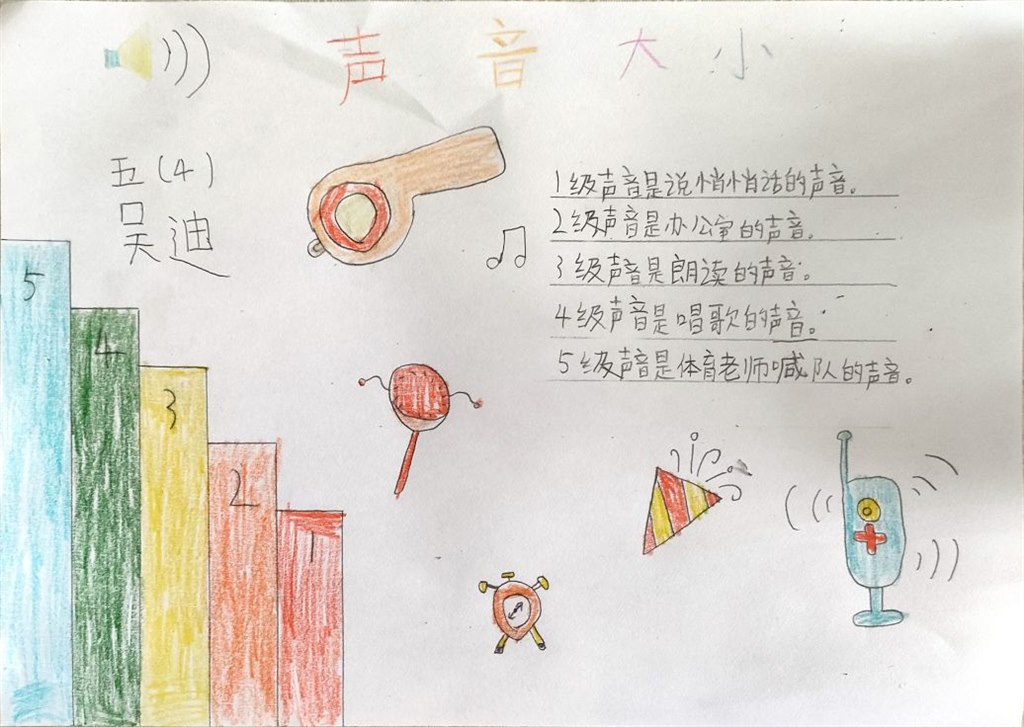 声音大小
五(4)
吴迪
1级声音是说悄悄话的声音。
2级声音是办公室的声音。
3级声音是朗读的声音。
4级声音是唱歌的声音。
5级声音是体育老师喊队的声音。
5
4
3
2
1